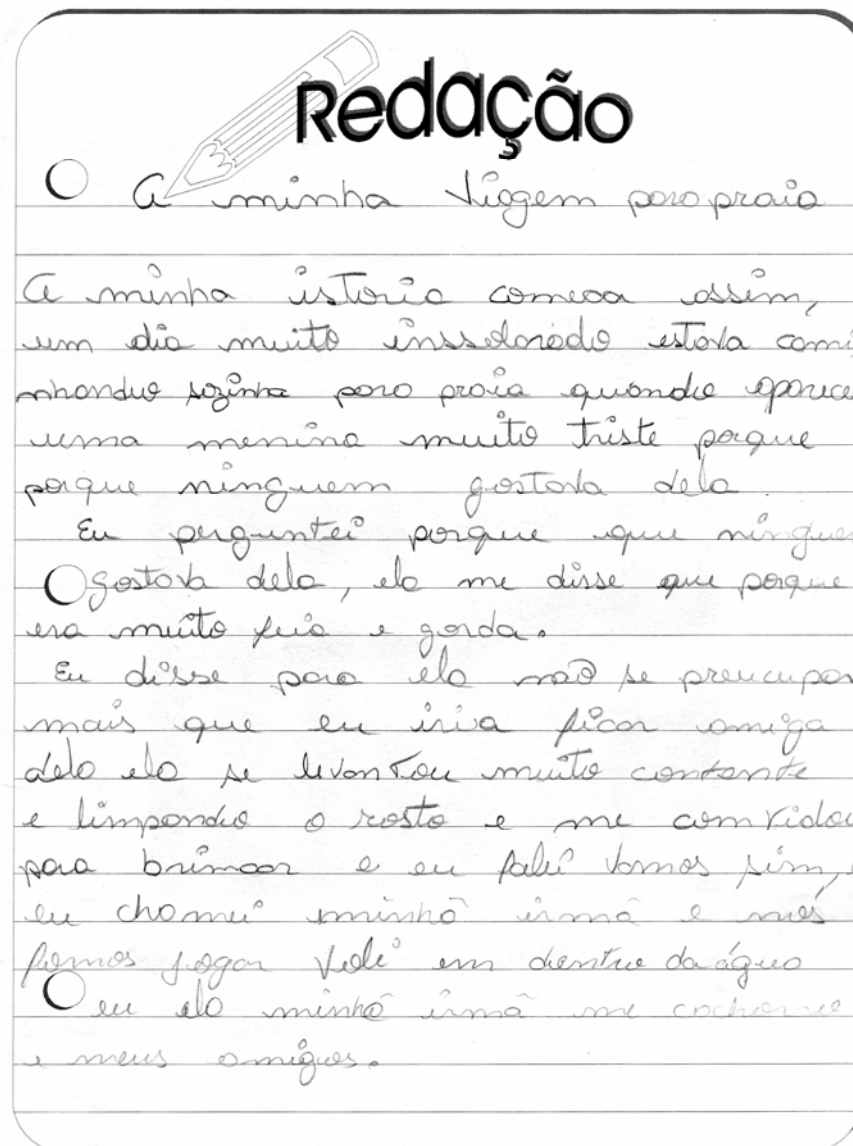 Redação
A minha viagem para praia
A minha istoria comeca assim,
um dia muito inssolarado estava cami
nhando sozinha para praia quando aparece
uma menina muito triste porque
porque ninguem gostava dela.
Eu perguntei porque que ningue
gostava dela, ela me disse que porque
era muito feia e gorda.
Eu disse para ela não se preucupar
mais que eu iria ficar amiga
dela ela se levantou muito contente
e limpando o rosto e me comvidou
para brincar e eu falei vamos sim,
eu chamei minhã irmã e nós
fomos jogar volei em dentro da água
eu ela minhã irmã me cachorro
e meus amigos.